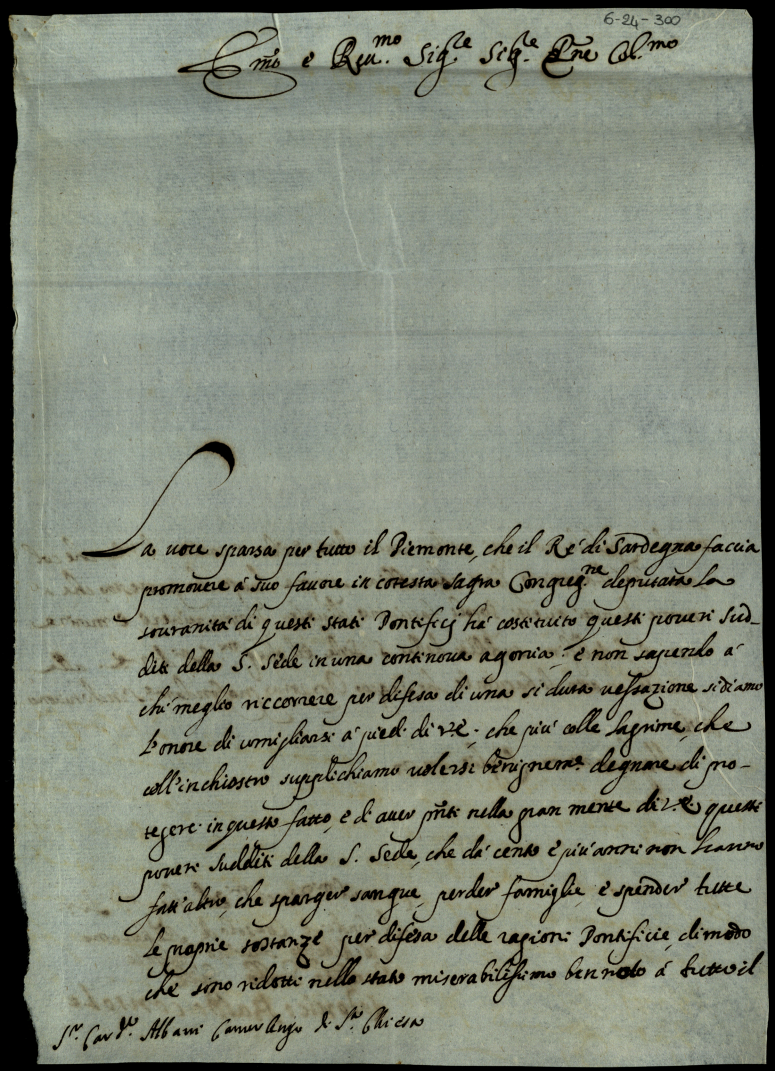 6-24-300
Em̃o e Reu.mo Sig.re Sig.re Pr̃ne Col.mo
La uoce sparsa per tutto il Piemonte, che il Rè di Sardegna faccia
promouere à suo fauore in cotesta sagra Congreg.ne deputata la
souranità di questi stati Pontificij hà costituito questi poueri sud-
diti della S. Sede in una continoua agonia; e non sapendo à
chi meglio riccorrere per difesa di una si dura uessazione si diamo
l'onore di umigliarsi à piedi di V.E. che più colle lagrime, che
coll'inchiostro supplichiamo uolersi benignem.e degnare di pro-
tegere in questo fatto, e di auer pr̃nti nella gran mente di V.E. questi
poueri sudditi della S. Sede, che dà cento e più anni non hanno
fatt'altro, che sparger sangue, perder famiglie, e spender tutte
le proprie sostanze per difesa delle ragioni Pontificie, di modo
che sono ridotti nello stato miserabilissimo ben noto à tutto il
S.r Card.le Albani Camerlengo di S.ta Chiesa